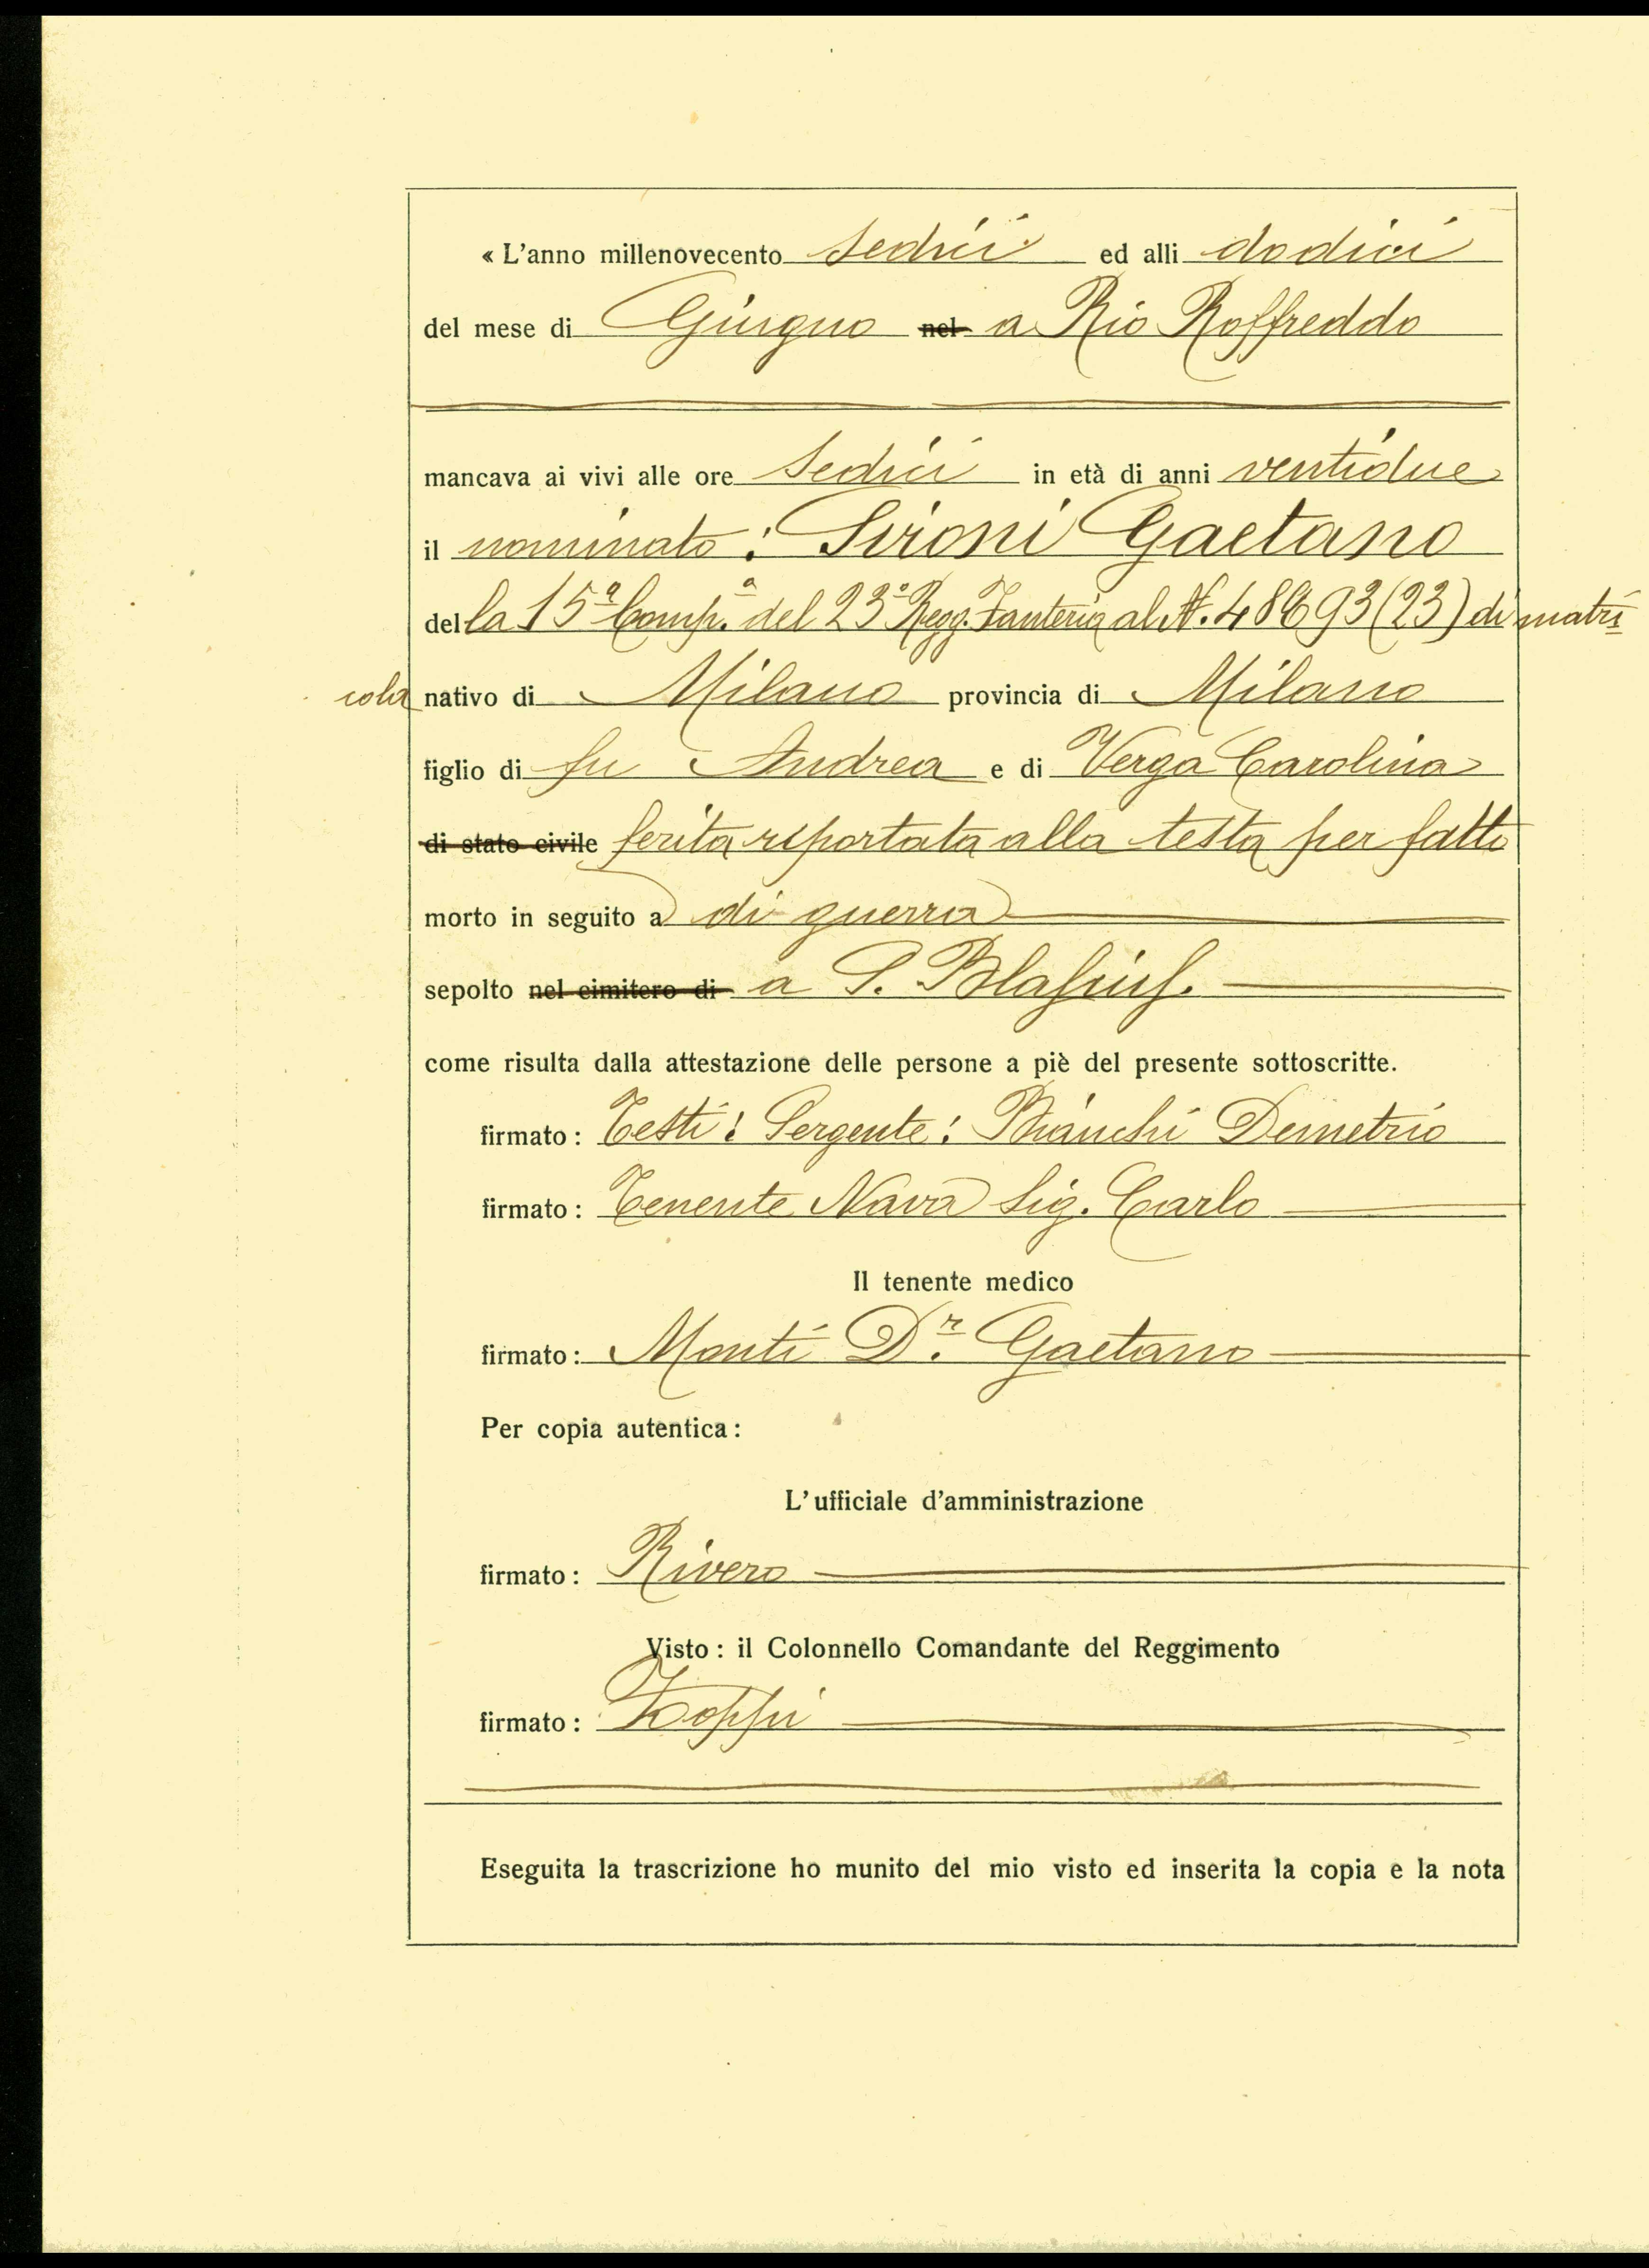 « L'anno millenovecento sedici ed alli dodici
del mese di Giugno nel a Rio Roffreddo
mancava ai vivi alle ore sedici in età di anni ventidue
il nominato : Sironi Gaetano
della 15ª Compª. del 23º Regg. Fanteria al N. 48693 (23) di matri
cola nativo di Milano provincia di Milano
figlio di fu Andrea e di Verga Carolina
di stato civile ferita riportata alla testa per fatto
morto in seguito a di guerra
sepolto nel cimitero di a S.
come risulta dalla attestazione delle persone a piè del presente sottoscritte.
firmato : Testi : Sergente : Bianchi Demetrio
firmato : Tenente Nava Sig. Carlo
Il tenente medico
firmato : Monti Dr. Gaetano
Per copia autentica :
L'ufficiale d'amministrazione
firmato : Rivero
Visto : il Colonnello Comandante del Reggimento
firmato : Zoppi
Eseguita la trascrizione ho munito del mio visto ed inserita la copia e la nota